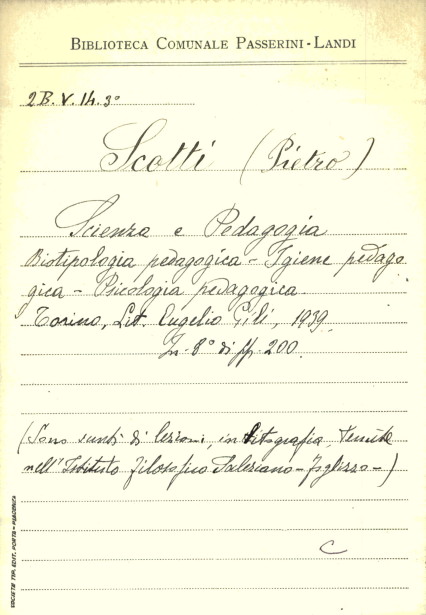 BIBLIOTECA COMUNALE PASSERINI-LANDI
2B. V. 14. 3°
Scotti (Pietro)
Scienza e Pedagogia
Biotipologia pedagogica - Igiene pedago
gica - Psicologia pedagogica
Torino, Lit. Eugelio Gili, 1939
In-8° di pp. 200.
(Sono sunti di lezioni, in litografia, tenute
nell'Istituto filosofico Salesiano - Foglizzo -)
C
SOCIETÀ TIP. EDIT. PORTA - PIACENZA